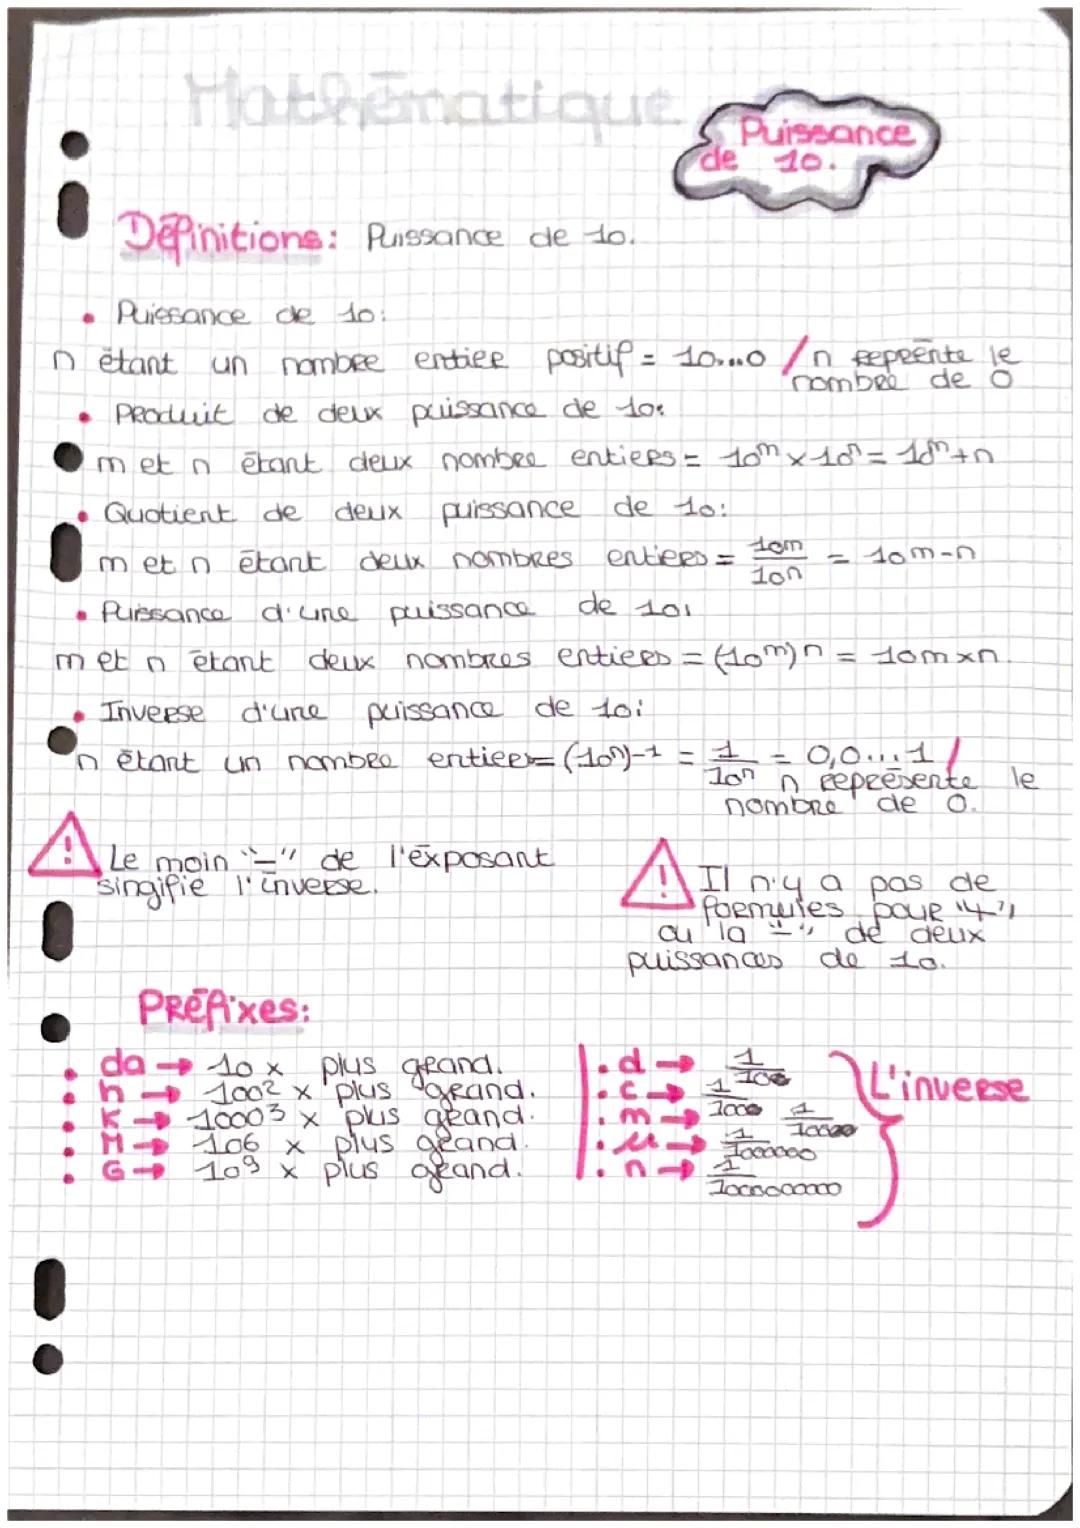 Mathématique
Puissance
de 10.
Définitions: Puissance de 10.
• Puissance de 10:
n étant un nombre entier positif = 10...0 / n repréente le
nombre de 0
• Produit de deux puissance de 10:
m et n étant deux nombre entiers = 10ᵐ x 10ⁿ = 10ᵐ+n
• Quotient de deux puissance de 10:
m et n étant deux nombres entiers = 10m/10n = 10m-n
• Puissance d'une puissance de 10:
m et n étant deux nombres entiers = (10ᵐ)n = 10mxn.
• Inverse d'une puissance de 10:
n étant un nombre entier = (10ⁿ)-1 = 1/10ⁿ = 0,0...1 /
n représente le
nombre de 0.
! Le moin "-" de l'éxposant
singifie l'inverse.
! Il n'y a pas de
formules pour "+"
ou la "-" de deux
puissances de 10.
Préfixes:
• da → 10 x plus grand.
• h → 100² x plus grand.
• K → 1000³ x plus grand.
• M → 106 x plus grand.
• G → 10⁹ x plus grand.
• d → 1/100
• c → 1/1000
• m → 1/10000
• µ → 1/1000000
• n → 1/1000000000
L'inverse